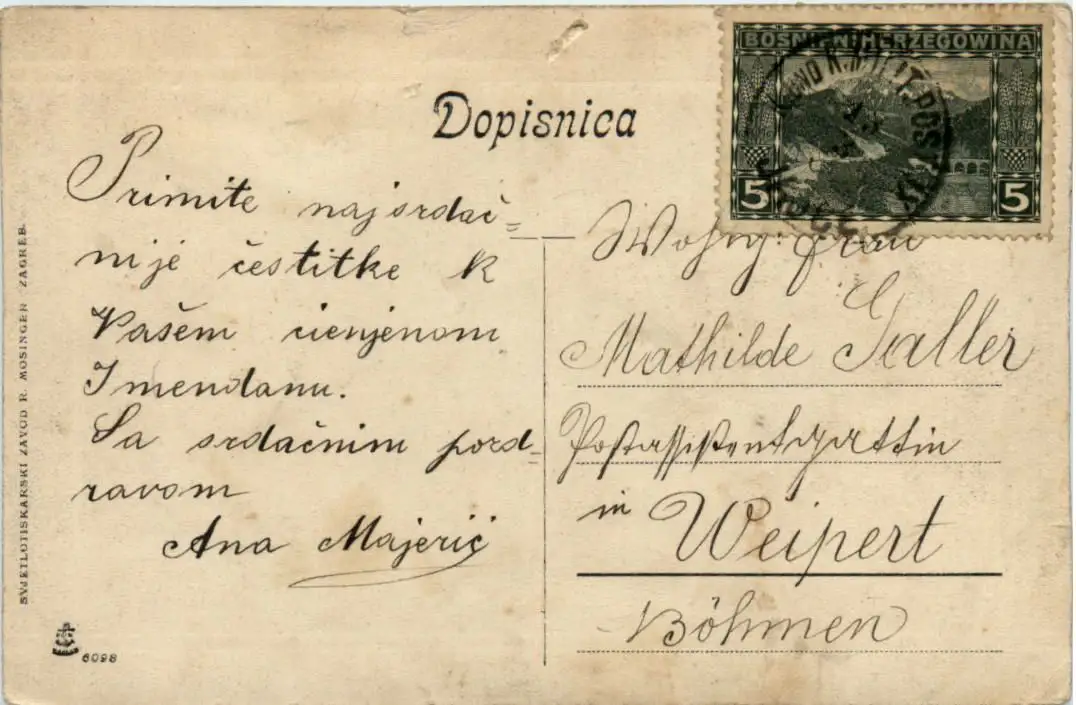 BOSNIEN-HERZEGOWINA
5 5
Dopisnica
Primite najsrdač=
nije čestitke k
Vašem cienjenom
Imendanu.
Sa srdačnim pozd-
ravom
Ana Majerić
Wohlg: Frau
Mathilde Galler
Postassistentgattin
in Weipert
Böhmen
SVJETLOTISKARSKI ZAVOD R. MOSINGER ZAGREB.
6098